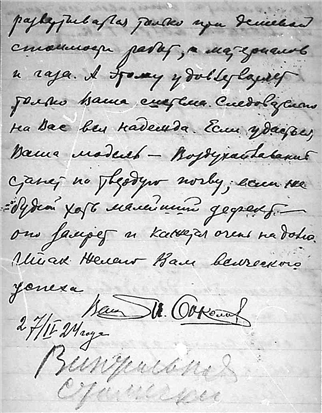 развитываться только при дешевой
стоимости работ, и материалов
и газа. А этому удовлетворяет
только Ваша система. Следовательно
на Вас вся надежда. Если удастся
Ваша модель – Воздухоплавание
станет на твердую почву; если же
будет хоть малейший дефект –
оно замрет и кажется очень надолго.
Итак желаю Вам всяческого
успеха
Ваш И. Соколов
27/IV 24 года